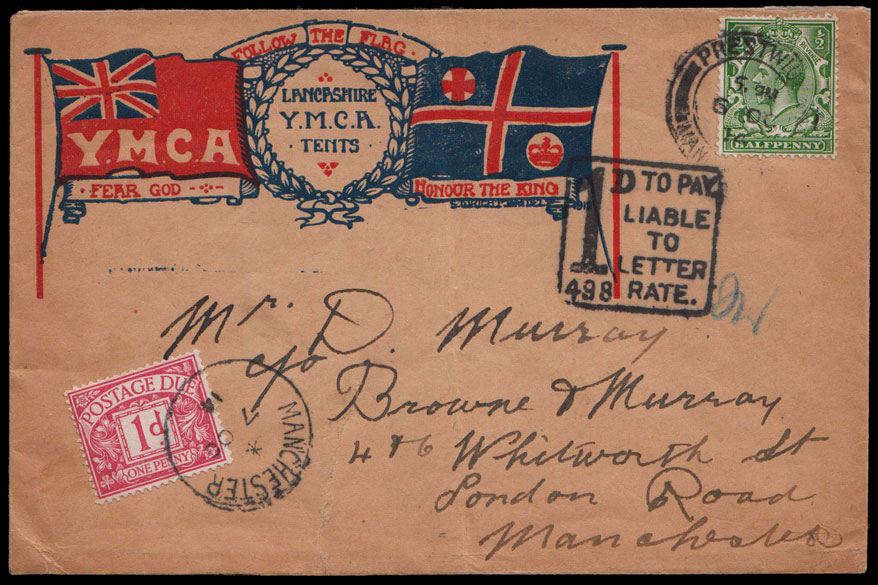 FOLLOW THE FLAG
LANCASHIRE
Y.M.C.A.
TENTS
Y.M.C.A
FEAR GOD
HONOUR THE KING
PRESTWI
MAN
1/2
HALFPENNY
1D TO PAY
LIABLE
TO
LETTER
RATE.
498
Mr. D. Murray
c/o
Browne & Murray
4 & 6 Whitworth St
London Road
Manchester
POSTAGE DUE
1d
ONE PENNY
MANCHESTER